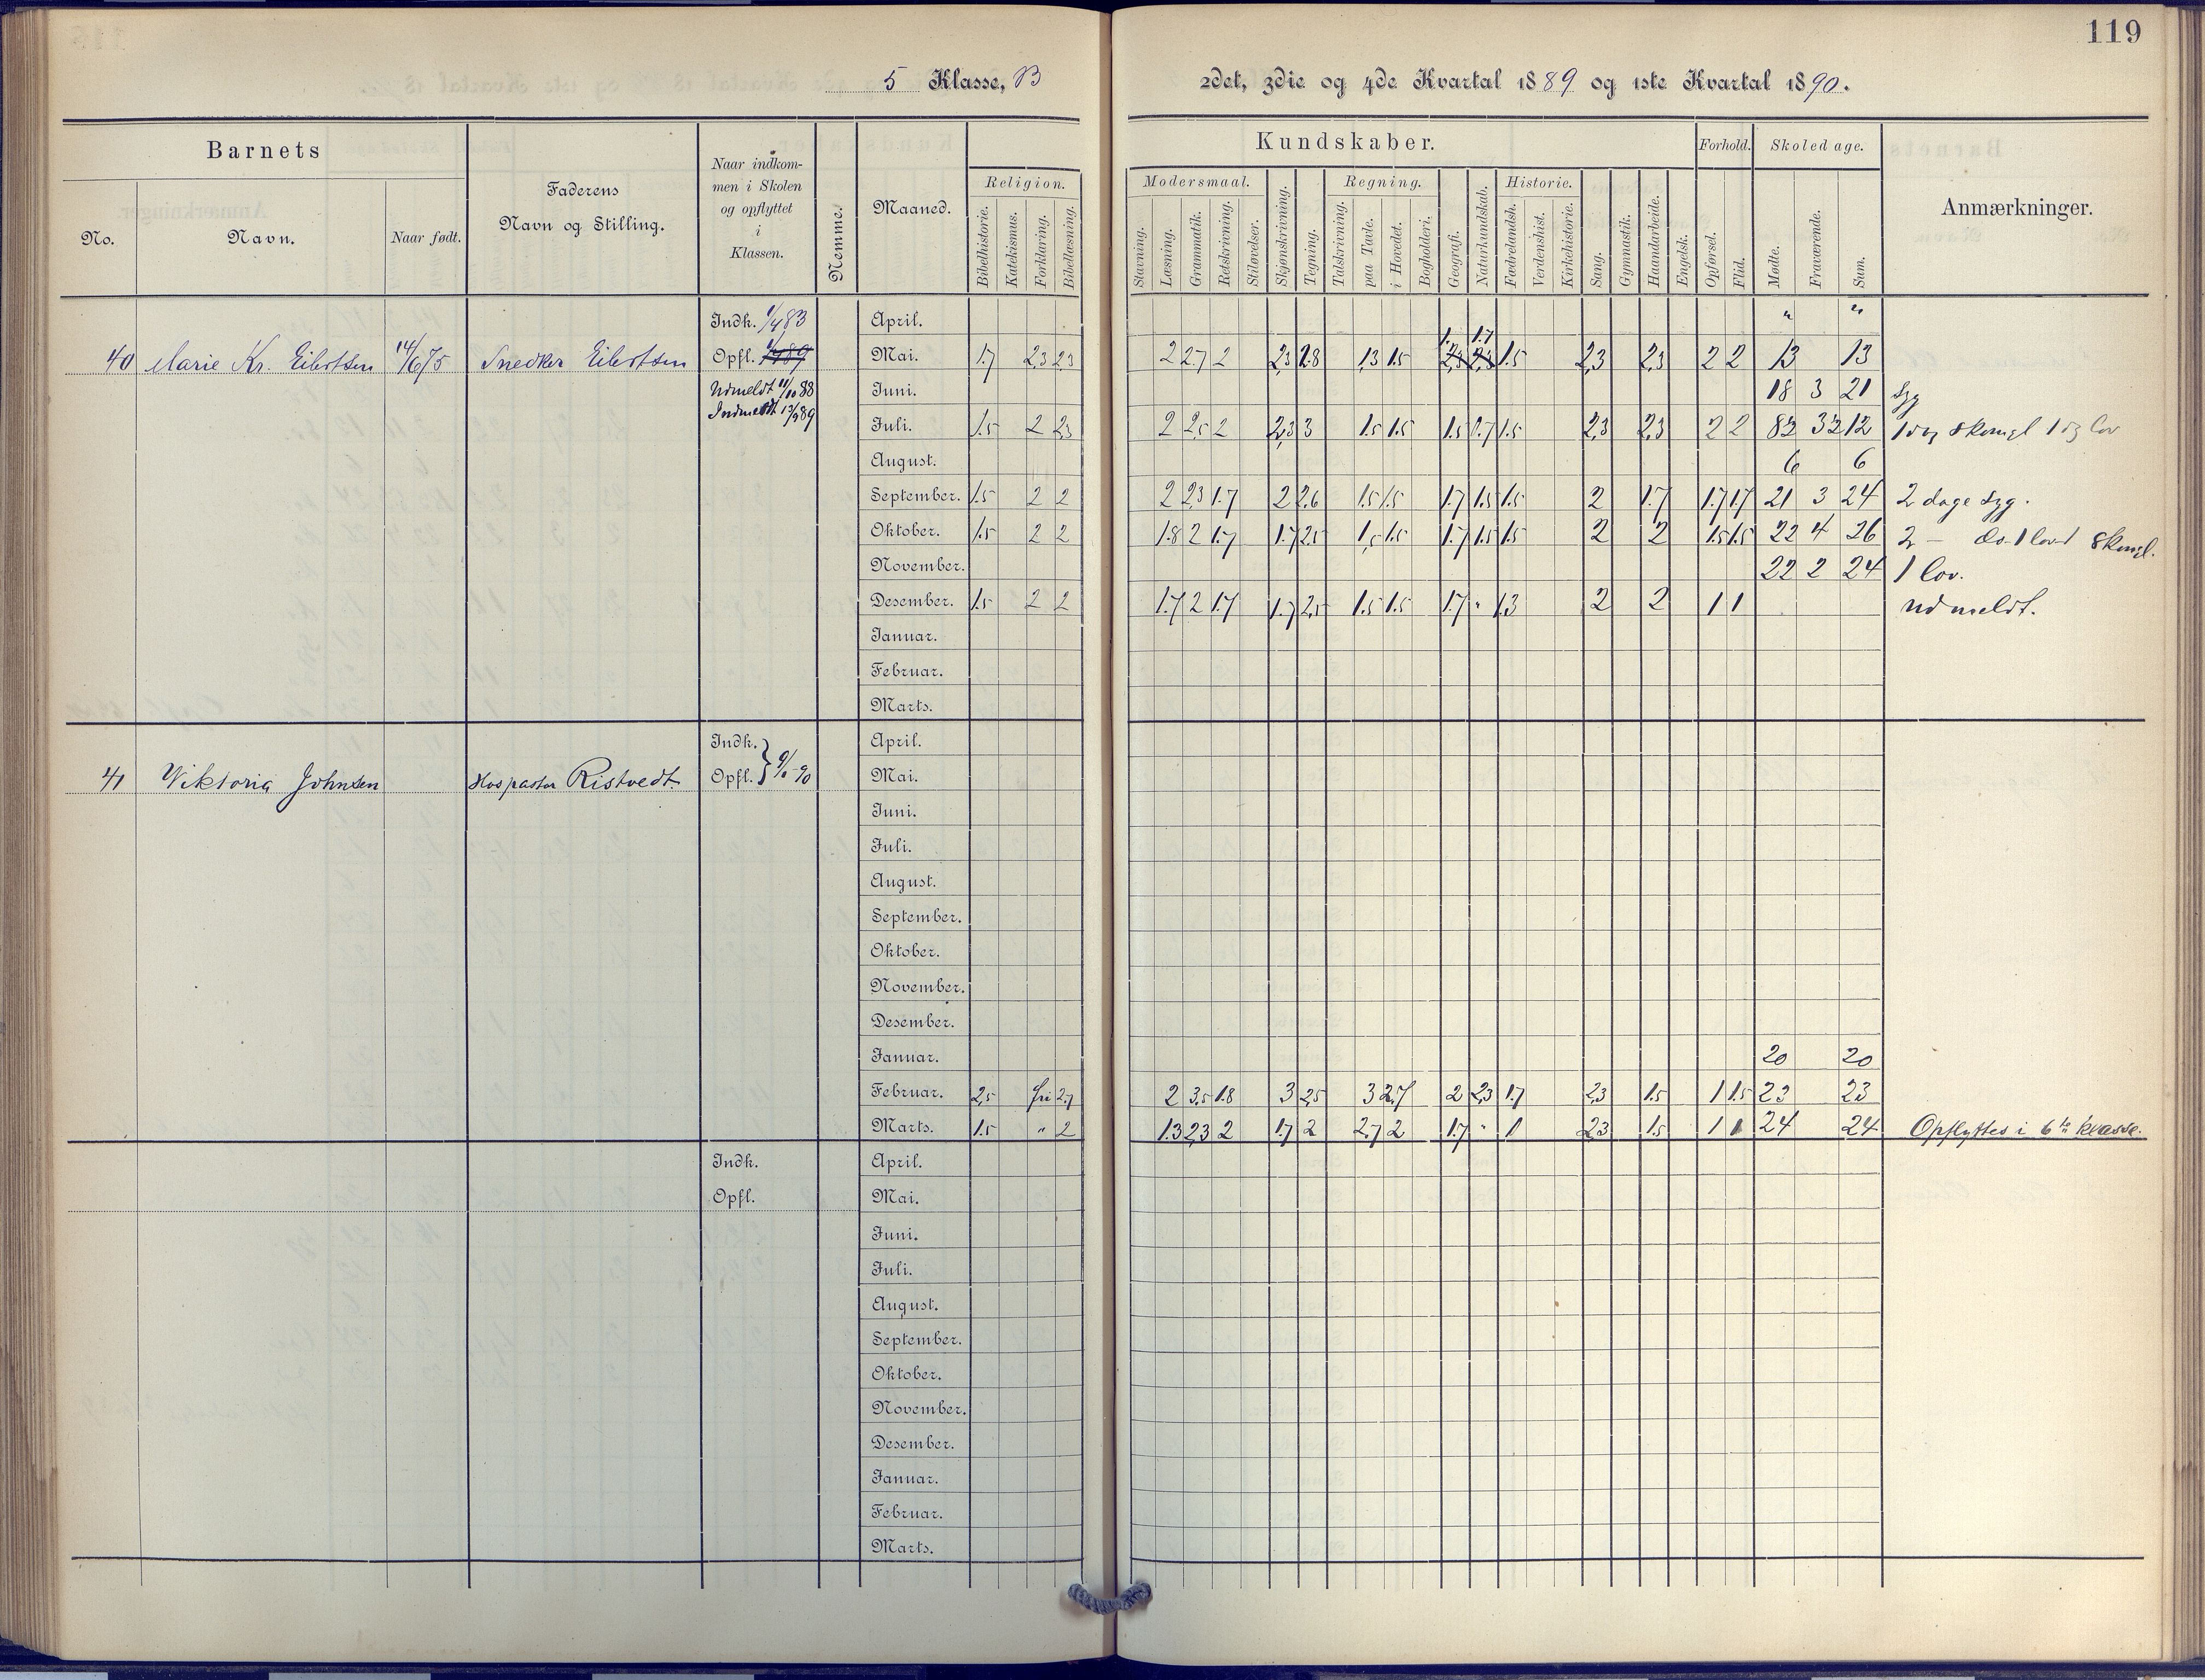 119
5 Klasse, B
2det, 3die og 4de Kvartal 1889 og 1ste Kvartal 1890.
Barnets
No.
Navn.
Naar født.
Faderens
Navn og Stilling.
Naar indkom-
men i Skolen
og opflyttet
i
Klassen.
Nemme.
Maaned.
Kundskaber.
Religion.
Bibelhistorie.
Katekismus.
Forklaring.
Bibellæsning.
Modersmaal.
Stavning.
Læsning.
Grammatik.
Retskrivning.
Stiløvelser.
Skjønskrivning.
Tegning.
Regning.
Talskrivning.
paa Tavle.
i Hovedet.
Bogholderi.
Geografi.
Naturkundskab.
Historie.
Fædrelandsh.
Verdenshist.
Kirkehistorie.
Sang.
Gymnastik.
Haandarbeide.
Engelsk.
Forhold.
Opførsel.
Flid.
Skoledage.
Mødte.
Fraværende.
Sum.
Anmærkninger.
Indk. 1/4 83
April. " "
40 Marie Kr. Eilertsen 14/6 75 Snedker Eilertsen Opfl.
Mai. 1.7 2,3 2,3 2 2.7 2 2,3 2.8 1,3 1.5 1.7 1.5 2,3 2,3 2 2 13 13
Udmeldt 11/10 88
Juni. 18 3 21 syg
Indmeldt 13/5 89
Juli. 1.5 2 2,3 2 2,5 2 2,3 3 1.5 1.5 1.5 1.7 1.5 2,3 2,3 2 2 8½ 3½ 12 1 dag skomgl 1 dg lov
August. 6 6
September. 1.5 2 2 2 2,3 1.7 2 2,6 1.5 1.5 1.7 1.5 1.5 2 1.7 1.7 1.7 21 3 24 2 dage syg.
Oktober. 1.5 2 2 1.8 2 1.7 1.7 2.5 1,5 1.5 1.7 1.5 1.5 2 2 1.5 1.5 22 4 26 2 — do. 1 lov 1 skomgl.
November. 22 2 24 1 lov.
Desember. 1.5 2 2 1.7 2 1.7 1.7 2,5 1.5 1.5 1.7 " 1.3 2 2 1 1 udmeldt.
Januar.
Februar.
Marts.
Indk.
April.
41 Viktoria Johnsen Hos pastor Ristvedt Opfl.
Mai.
Juni.
Juli.
August.
September.
Oktober.
November.
Desember.
Januar. 20 20
Februar. 2,5 fri 2.7 2 3.5 1.8 3 2,5 3 2.7 2 2,3 1.7 2,3 1.5 1 1.5 23 23
Marts. 1.5 " 2 1.3 2,3 2 1.7 2 2.7 2 1.7 " 1 2,3 1.5 1 1 24 24 Opflyttes i 6te klasse.
Indk.
April.
Opfl.
Mai.
Juni.
Juli.
August.
September.
Oktober.
November.
Desember.
Januar.
Februar.
Marts.